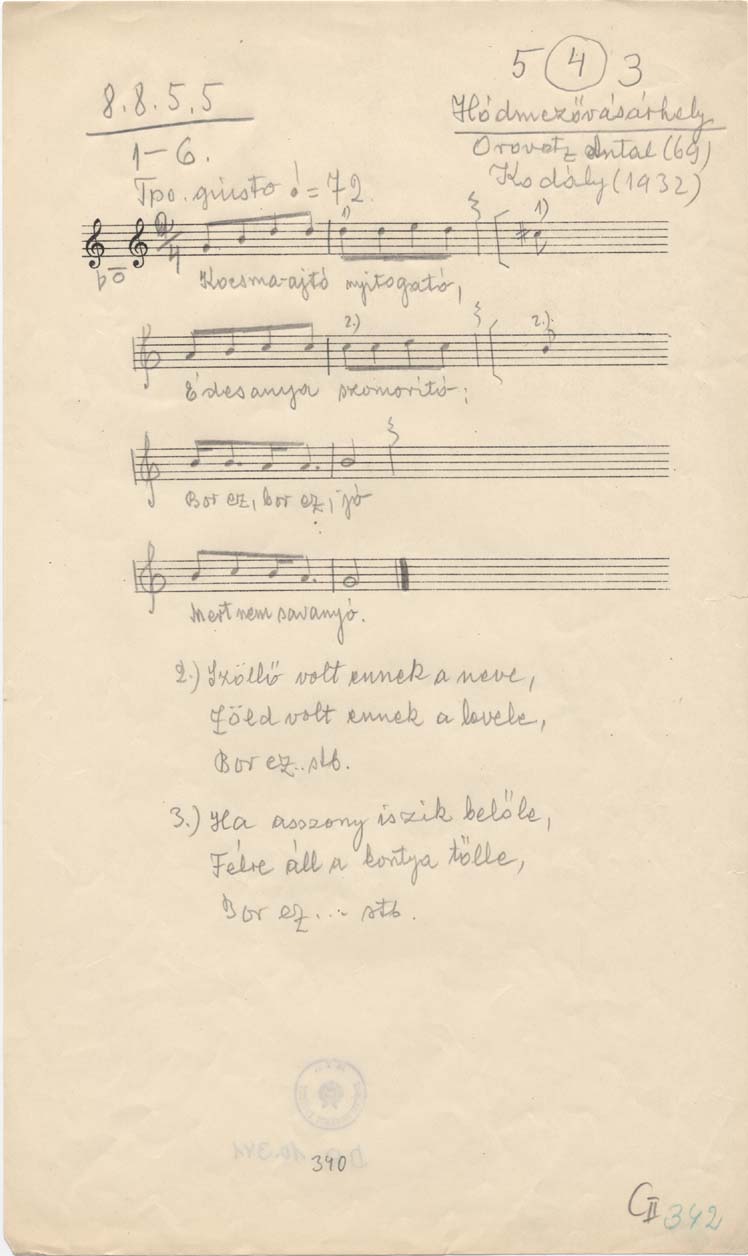 5 4 3
8.8.5.5
1-6.
Hódmezővásárhely
Orovotz Antal (69)
Kodály (1932)
Tpo. giusto = 72.
2/4
1) 1)
Kocsma-ajtó nyitogató,
2.) 2.)
Édesanya szomorító;
Bor ez, bor ez, jó
Mert nem savanyó.
2.) Szőllő volt ennek a neve,
Zöld volt ennek a levele,
Bor ez.. stb.
3.) Ha asszony iszik belőle,
Félre áll a kontya tőlle,
Bor ez... stb.
340
CII 342